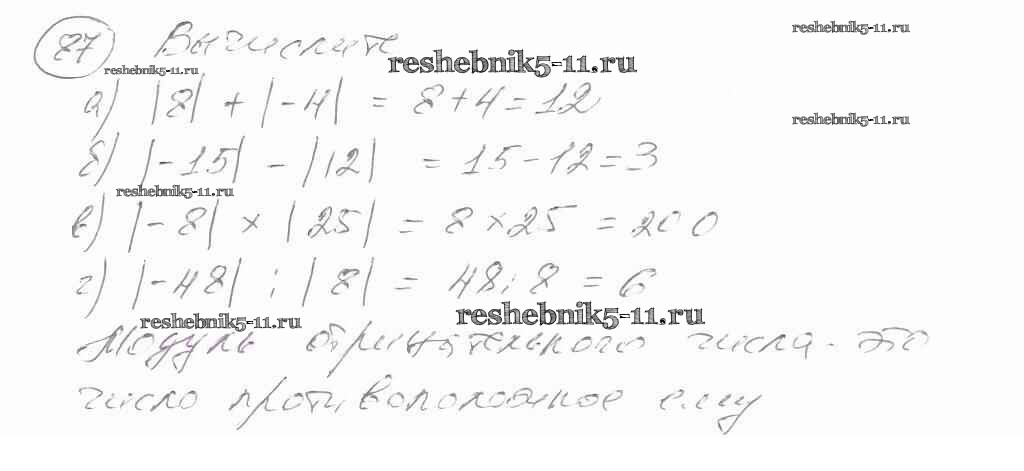 reshebnik5-11.ru
87 Вычислите
reshebnik5-11.ru
reshebnik5-11.ru
а) |8| + |-4| = 8+4=12
reshebnik5-11.ru
б) |-15| - |12| = 15-12=3
reshebnik5-11.ru
в) |-8| × |25| = 8×25 = 200
г) |-48| : |8| = 48:8 = 6
reshebnik5-11.ru
reshebnik5-11.ru
Модуль отрицательного числа - это
число противоположное ему